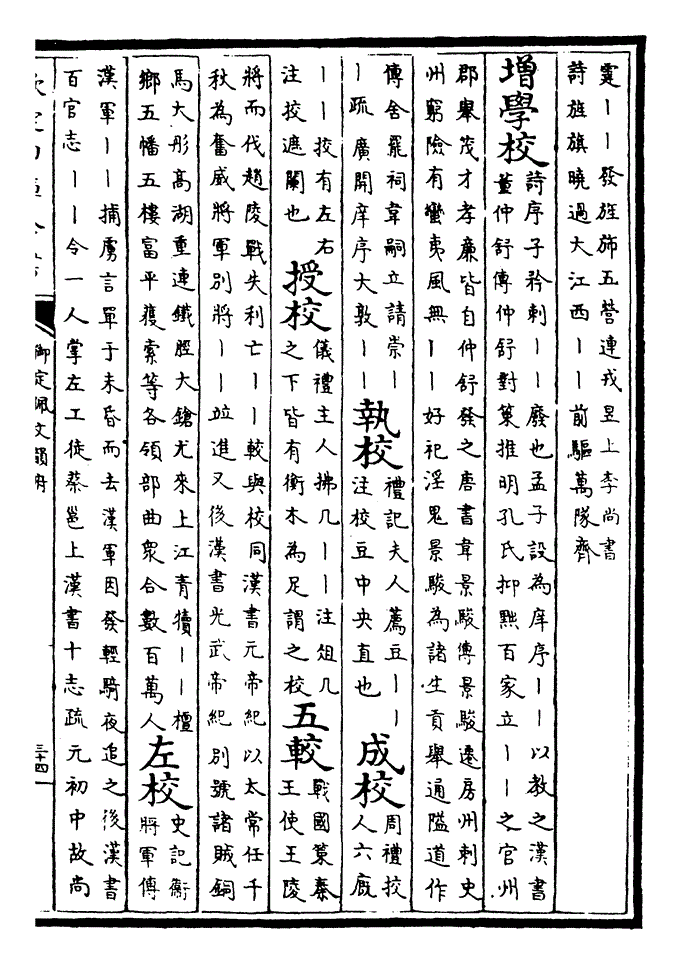 霆丨丨發旌斾五營連戎昱上李尚書
詩旌旗曉過大江西丨丨前驅萬隊齊
增學校
詩序子衿刺丨丨廢也孟子設為庠序丨丨以教之漢書
董仲舒傳仲舒對策推明孔氏抑黜百家立丨丨之官州
郡舉茂才孝廉皆自仲舒發之唐書韋景駿傳景駿遷房州刺史
州窮險有蠻夷風無丨丨好祀淫鬼景駿為諸生貢舉通隘道作
傳舍罷祠韋嗣立請崇丨
丨疏廣開庠序大敦丨丨
執校
禮記夫人薦豆丨丨
注校豆中央直也
成校
周禮挍
人六廐
丨丨挍有左右
注挍遮闌也
授校
儀禮主人拂几丨丨注俎几
之下皆有衡木為足謂之校
五較
戰國策秦
王使王陵
將而伐趙陵戰失利亡丨丨較與校同漢書元帝紀以太常任千
秋為奮威將軍別將丨丨竝進又後漢書光武帝紀別號諸賊銅
馬大彤髙湖重連鐵脛大鎗尤來上江青犢丨丨檀
鄉五幡五樓富平獲索等各領部曲衆合數百萬人
左校
史記衛
將軍傳
漢軍丨丨捕虜言單于未昏而去漢軍因發輕騎夜追之後漢書
百官志丨丨令一人掌左工徒蔡邕上漢書十志疏元初中故尚
御定佩文韻府
三十四